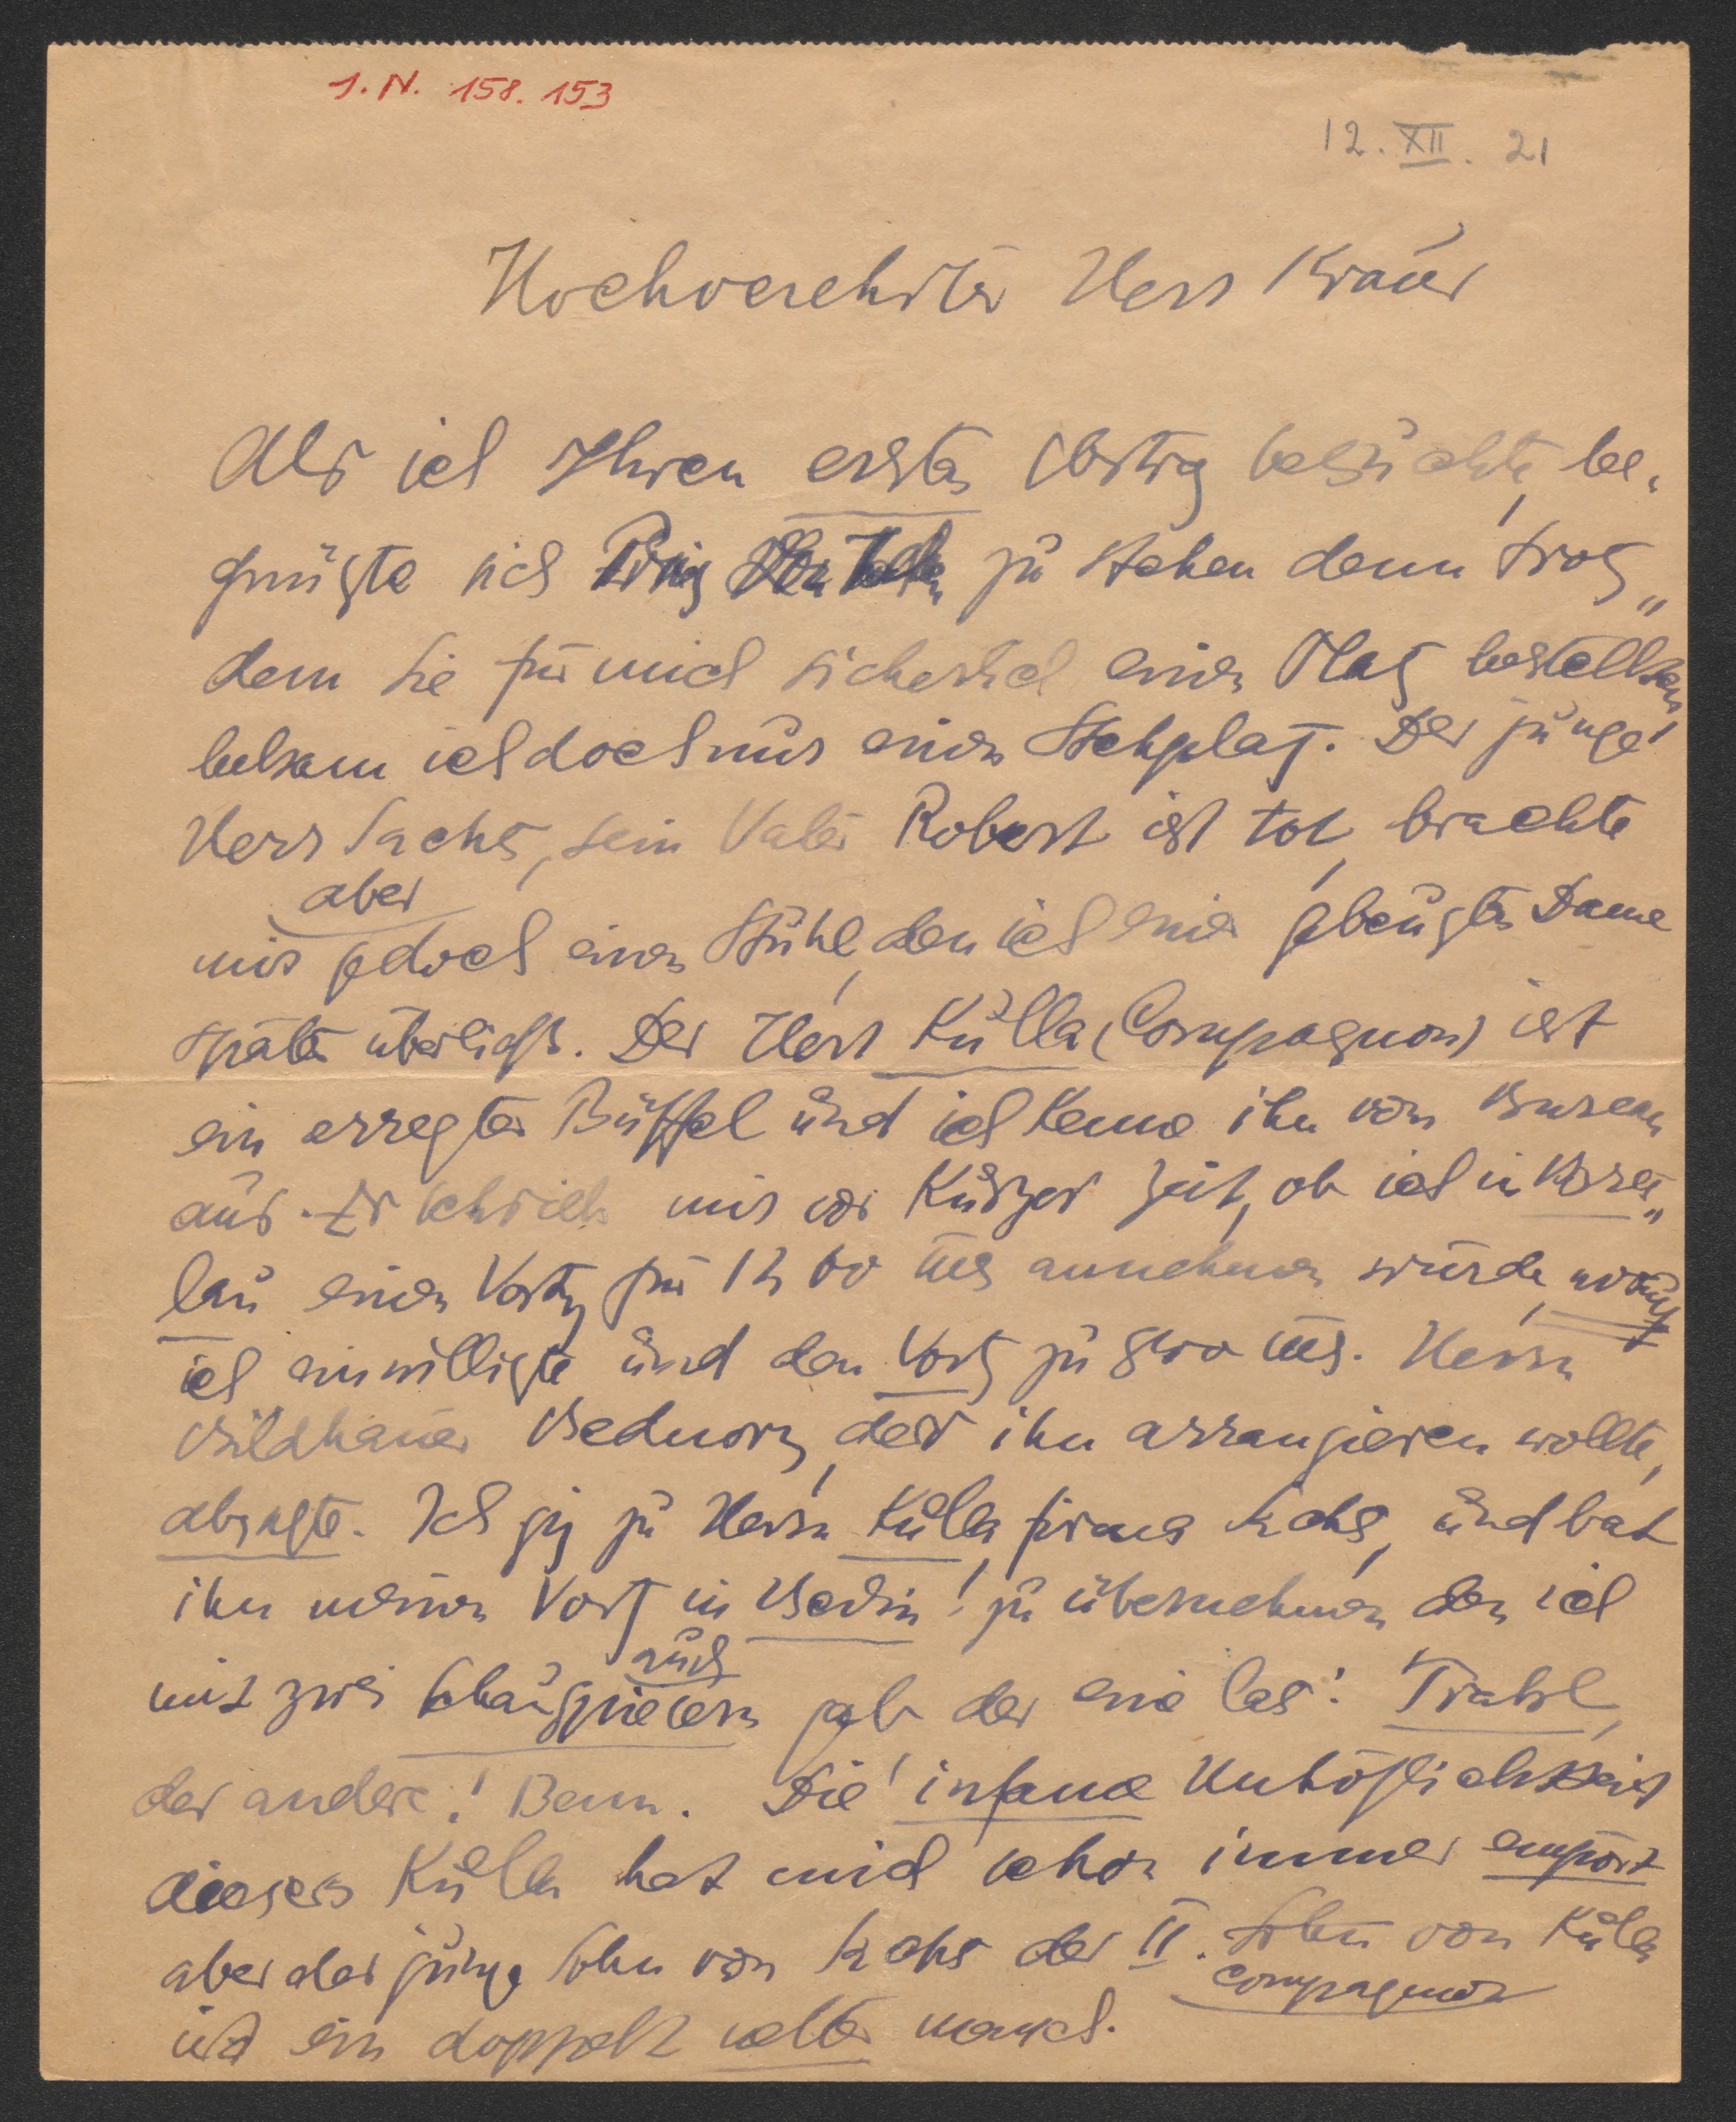 I. N. 158.153
12. XII. 21
Hochverehrter Herr Kraus
Als ich Ihren ersten Vortrag besuchte, be-
gnügte sich Prinz von Theben zu stehen denn trotz„
dem Sie für mich sicherlich einen Platz bestellten,
bekam ich doch nur einen Stehplatz. Der junge
Herr Sachs, sein Vater Robert ist tot, brachte
aber
mir jedoch einen Stuhl, den ich einer gebeugten Dame
später überließ. Der Herr Kulla (Compagnon) ist
ein erregter Büffel und ich kenne ihn vom Bureau
aus. Er schrieb mir vor kurzer Zeit, ob ich in Bres„
lau einen Vortrg für 1200 Mk annehmen würde, worauf
ich einwilligte und den Vortg zu 800 Mk. Herrn
Bildhauer Bednorz, der ihn arrangieren wollte,
absagte. Ich gig zu Herrn Kulla, firma Sachs, und bat
ihn meinen Vortg in Berlin! zu übernehmen den ich
mit zwei Schauspielern gab der eine las: Tralsl,
auch
der andere! Benn. Die! infame Unhöflichkeit
dieses Kulla hat mich schon immer empört
aber der junge Sohn von Sachs der II. Sohn von Kulla
Compagnon
ist ein doppelt netter Mensch.